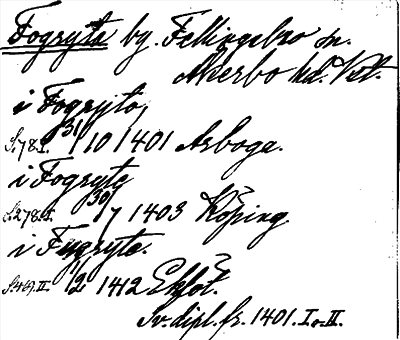 Fogryte by. Fellingsbro sn.
Åkerbo hd. Vstl.
i Fogryto,
S.78.I. 31/10 1401 Arboga.
i Fogryte
S.278.I. 30/7 1403 Köping.
i Fugryte.
II. 1/2 1412 Ekhot.
Sv. dipl. fr. 1401. I o. II.